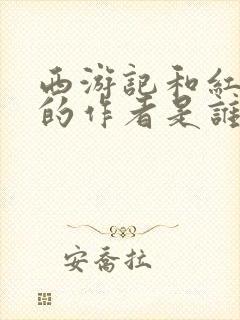 西游記和紅
的作者是誰
安喬拉